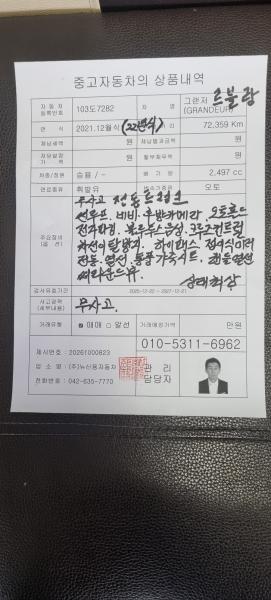 중고자동차의 상품내역
르블랑
자동차등록번호 103도7282 차명 그랜저 (GRANDEUR)
연식 2021.12월식 (22년식) 72,359 Km
체납세액 원 체납범과금액 원
저당설정가액 원 할부채무액 원
차종/원동 승용 / - 배기량 2,497 cc
연료종류 휘발유 변속기종류 오토
무사고 전동트렁크
썬루프, 네비, 후방카메라, 오토홀드
전자파킹, 블루투스음성, 크루즈컨트롤
차선이탈방지, 하이패스, 전자식시트
전동, 열선, 통풍가죽시트, 핸들열선
어라운드뷰. 상태최상
주요장비 (옵션)
검사유효기간 2025-12-22 ~ 2027-12-21
사고경력 (세부내용) 무사고.
거래유형 매매 알선 거래예정가액 만원
제시번호 : 20261000823 010-5311-6962
업소명 : (주)뉴신용자동차
전화번호 : 042-635-7770
관리담당자